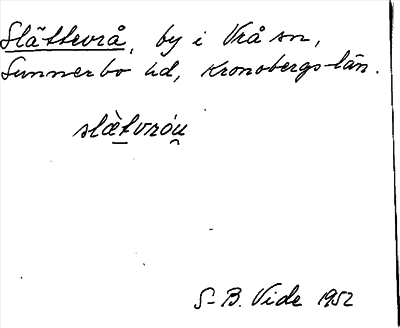 Slättevrå, by i Vrå sn,
Sunnerbo hd, Kronobergs län.
slæ̀tvróu̯
S-B. Vide 1952